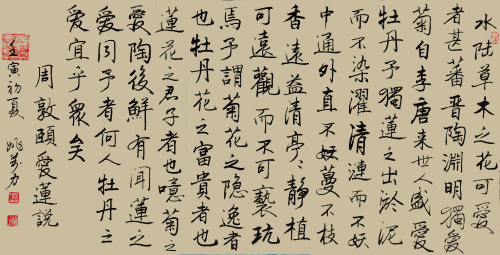 水陸草木之花可愛
者甚蕃晋陶淵明獨愛
菊自李唐来世人盛愛
牡丹予獨蓮之出於泥
而不染濯清漣而不妖
中通外直不妖蔓不枝
香遠益清亭〻静植
可遠觀而不可褻玩
焉予謂菊花之隐逸者
也牡丹花之富貴者也
蓮花之君子者也噫菊之
愛陶後鮮有聞蓮之
愛同予者何人牡丹之
愛宜乎衆矣
周敦頤愛蓮説
壬寅初夏